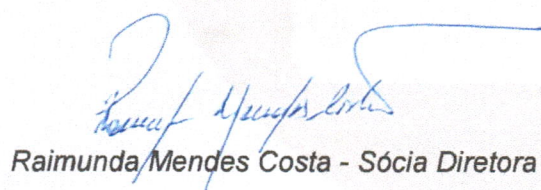 Raimunda Mendes Costa - Sócia Diretora